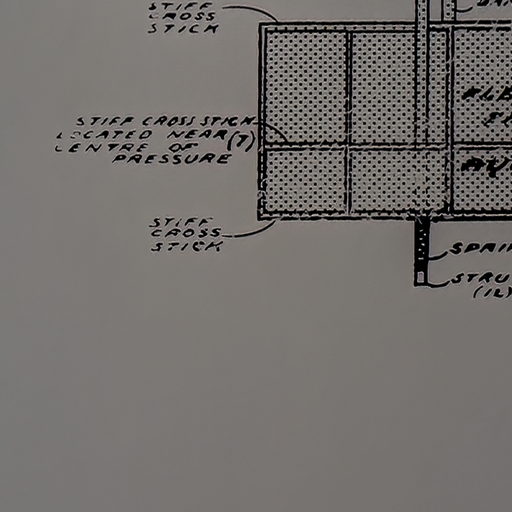 STIFF
CROSS
STICK
STIFF CROSS STICK
LOCATED NEAR (7)
CENTRE OF
PRESSURE
STIFF
CROSS
STICK
(12)